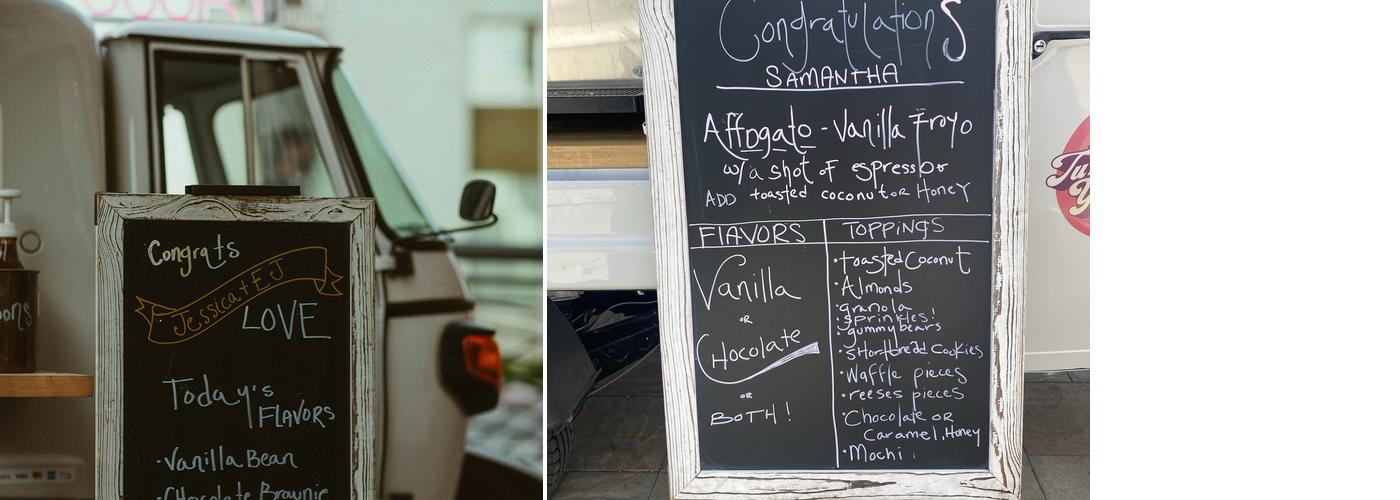 Congrats
Jessica + EJ
LOVE
Today's
FLAVORS
·Vanilla Bean
·Chocolate Brownie
Congratulations
SAMANTHA
Affogato - Vanilla Froyo
w/ a shot of espresso
ADD toasted coconut or Honey
FLAVORS
TOPPINGS
Vanilla
OR
Chocolate
OR
BOTH!
·toasted Coconut
·Almonds
·granola
·sprinkles!
·gummy bears
·shortbread Cookies
·Waffle pieces
·reeses pieces
·Chocolate OR
Caramel, Honey
·Mochi